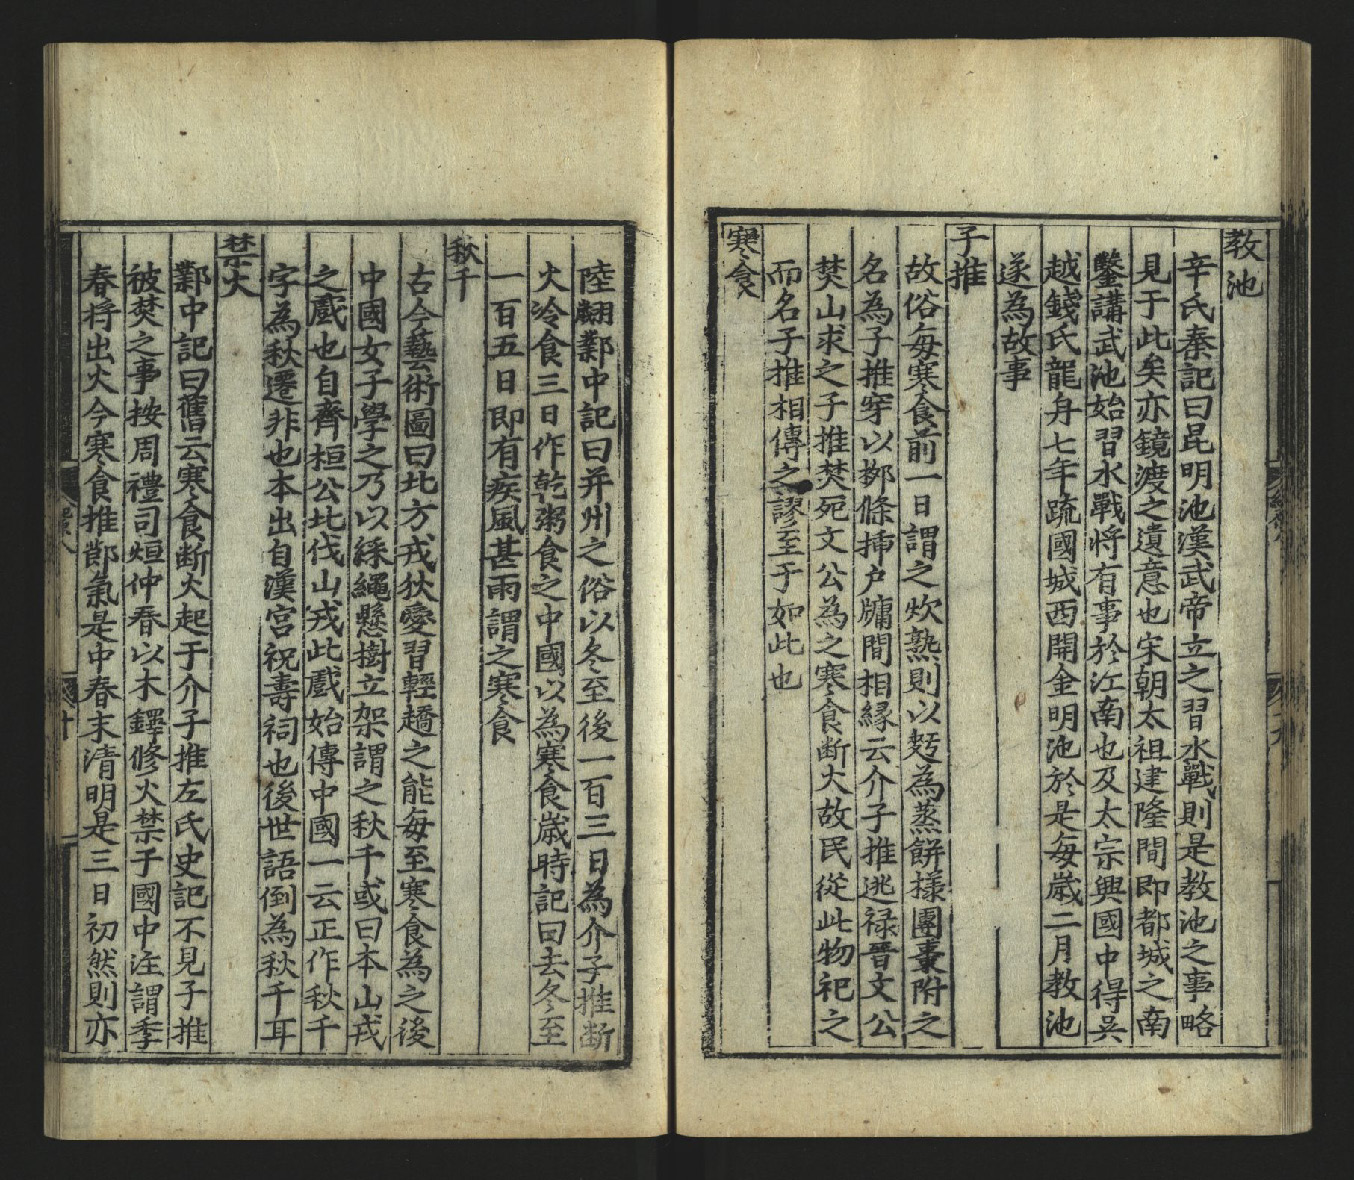 教池
辛氏秦記曰昆明池漢武帝立之習水戰則是教池之事略
見于此矣亦鏡渡之遺意也宋朝太祖建隆間即都城之南
鑿講武池始習水戰将有事於江南也及太宗興國中得吳
越錢氏龍舟七年䟽國城西開金明池於是每歲二月教池
遂為故事
子推
故俗每寒食前一日謂之炊熟則以麪為蒸餅様團棗附之
名為子推穿以栁條揷户牖間相縁云介子推逃禄晉文公
焚山求之子推焚死文公為之寒食断火故民從此物祀之
而名子推相傳之謬至于如此也
寒食
陸翽鄴中記曰并州之俗以冬至後一百三日為介子推断
火冷食三日作乾粥食之中國以為寒食歲時記曰去冬至
一百五日即有疾風甚雨謂之寒食
秋千
古今藝術圖曰北方戎狄愛習輕趫之能每至寒食為之後
中國女子學之乃以綵繩懸樹立架謂之秋千或曰本山戎
之戲也自齊桓公北伐山戎此戲始傳中國一云正作秋千
字為秋遷非也本出自漢宫祝壽祠也後世語倒為秋千耳
禁火
鄴中記曰舊云寒食断火起于介子推左氏史記不見子推
彼焚之事按周禮司烜仲春以木鐸修火禁于國中注謂季
春将出火今寒食推節氣是中春末清明是三日初然則亦